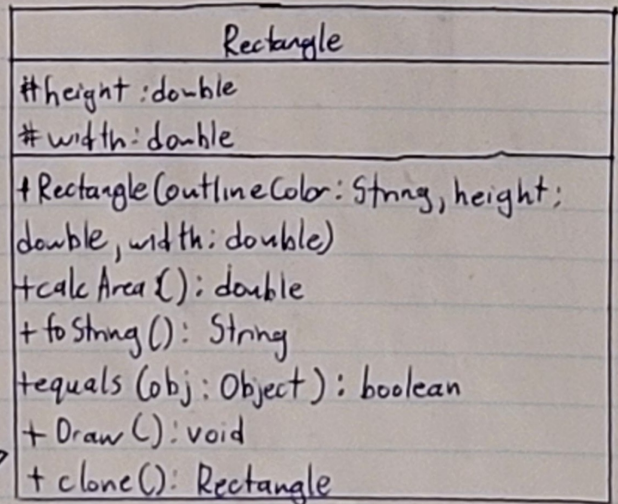 Rectangle
#height:double
#width:double
+Rectangle(outlineColor: String, height:
double, width: double)
+calcArea(): double
+toString(): String
+equals(obj: Object): boolean
+Draw(): void
+clone(): Rectangle